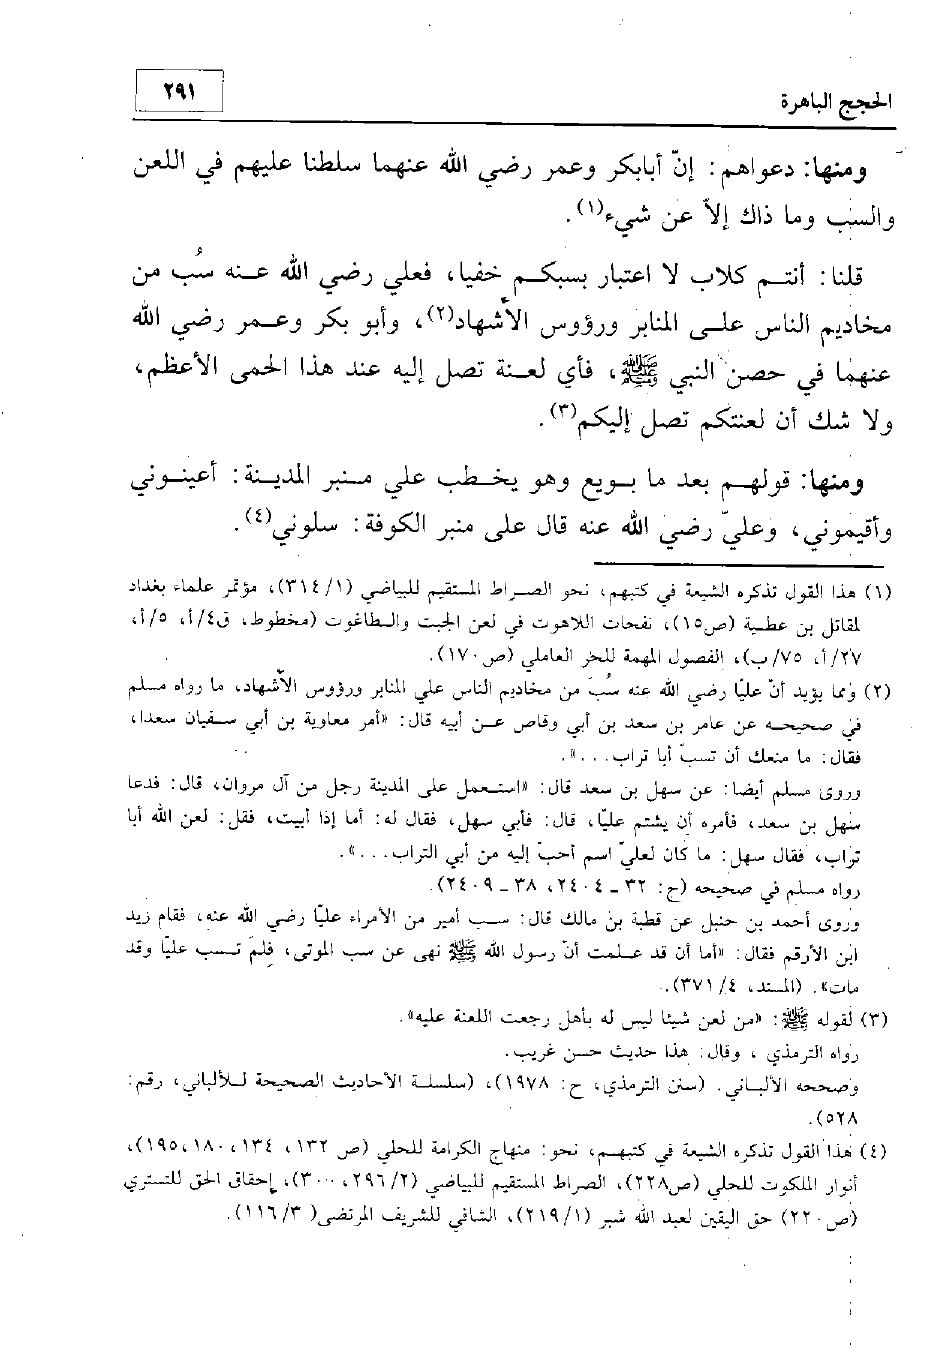 الحجج الباهرة
٢٩١
ومنها: دعواهم: إنّ أبابكر وعمر رضي الله عنهما سلطنا عليهم في اللعن
والسب وما ذاك إلاّ عن شيء(١).
قلنا: أنتم كلاب لا اعتبار بسبكم خفيا، فعلي رضي الله عنه سُب من
مخاديم الناس على المنابر ورؤوس الأشهاد(٢)، وأبو بكر وعمر رضي الله
عنهما في حصن النبي ﷺ، فأي لعنة تصل إليه عند هذا الحمى الأعظم،
ولا شك أن لعنتكم تصل إليكم(٣).
ومنها: قولهم بعد ما بويع وهو يخطب علي منبر المدينة: أعينوني
وأقيموني، وعليّ رضي الله عنه قال على منبر الكوفة: سلوني(٤).
(١) هذا القول تذكره الشيعة في كتبهم، نحو الصراط المستقيم للبياضي (١/ ٣١٤)، مؤتمر علماء بغداد
لمقاتل بن عطية (ص١٥)، نفحات اللاهوت في لعن الجبت والطاغوت (مخطوط، ق٤/ أ، ٥/ أ،
٢٧/ أ، ٧٥/ ب)، الفصول المهمة للحر العاملي (ص١٧٠).
(٢) ومما يؤيد أنّ عليّا رضي الله عنه سُبّ من مخاديم الناس علي المنابر ورؤوس الأشهاد، ما رواه مسلم
في صحيحه عن عامر بن سعد بن أبي وقاص عن أبيه قال: «أمر معاوية بن أبي سفيان سعدا،
فقال: ما منعك أن تسبّ أبا تراب...».
وروى مسلم أيضا: عن سهل بن سعد قال: «استعمل على المدينة رجل من آل مروان، قال: فدعا
سهل بن سعد، فأمره أن يشتم عليّا، قال: فأبي سهل، فقال له: أما إذا أبيت، فقل: لعن الله أبا
تراب، فقال سهل: ما كان لعليّ اسم أحبّ إليه من أبي التراب...».
رواه مسلم في صحيحه (ح: ٣٢ - ٢٤٠٤، ٣٨ - ٢٤٠٩).
وروى أحمد بن حنبل عن قطبة بن مالك قال: سب أمير من الأمراء عليّا رضي الله عنه، فقام زيد
ابن الأرقم فقال: «أما أن قد علمت أنّ رسول الله ﷺ نهى عن سب الموتى، فلم تسب عليّا وقد
مات». (المسند، ٤/ ٣٧١).
(٣) لقوله ﷺ: «من لعن شيئا ليس له بأهل رجعت اللعنة عليه».
رواه الترمذي ، وقال: هذا حديث حسن غريب.
وصححه الألباني. (سنن الترمذي، ح: ١٩٧٨)، (سلسلة الأحاديث الصحيحة للألباني، رقم:
٥٢٨).
(٤) هذا القول تذكره الشيعة في كتبهم، نحو: منهاج الكرامة للحلي (ص ١٣٢، ١٣٤، ١٨٠، ١٩٥)،
أنوار الملكوت للحلي (ص٢٢٨)، الصراط المستقيم للبياضي (٢/ ٢٩٦، ٣٠٠)، إحقاق الحق للتستري
(ص٢٢٠) حق اليقين لعبد الله شبر (١/ ٢١٩)، الشافي للشريف المرتضي( ٣/ ١١٦).